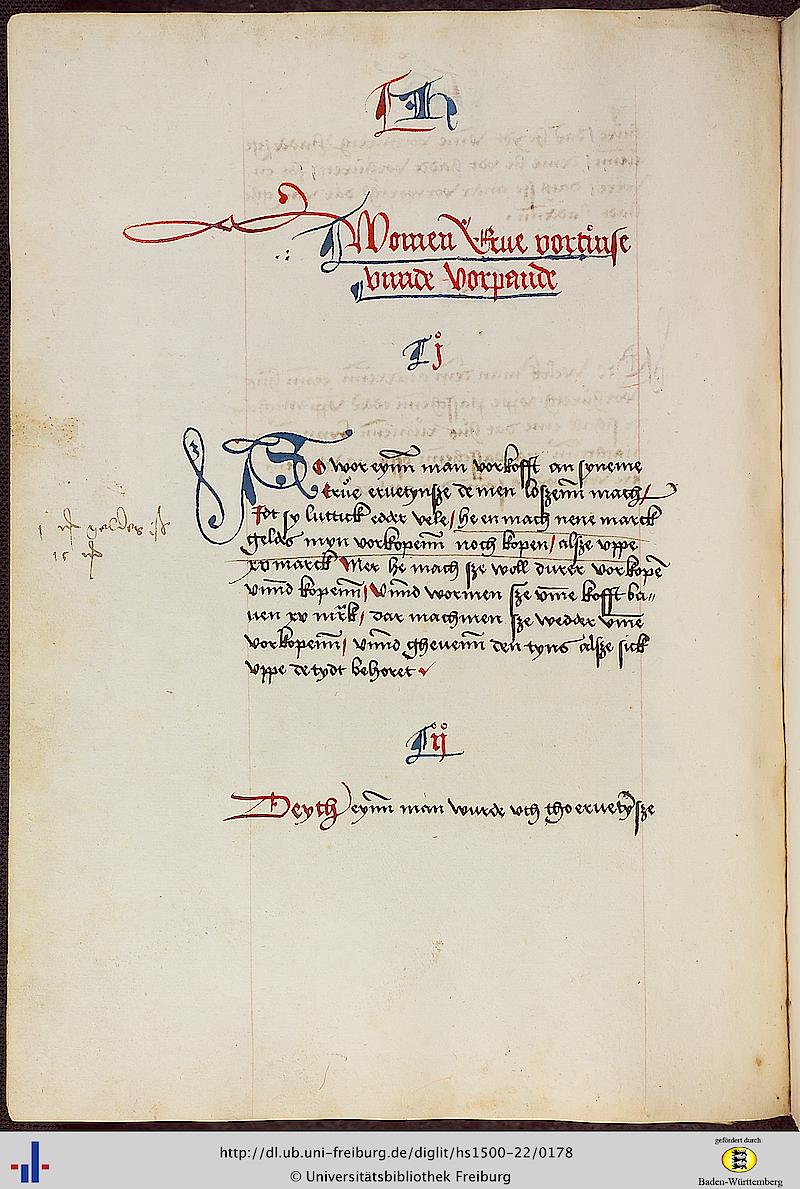 Women Erue vortinse
vnnde Vorpande
j
So wor eynn man vorkofft an syneme
erue eruetynsze de men loszenn mach /
Idt sy luttick edder vele / he en mach nene marck
geldes myn vorkopenn noch kopen / alsze vppe
xv marck Mer he mach sze woll durer vorkopē
vnnd kopenn / Vnnd wormen sze vme kofft ba„
uen xv mrk / dar machmen sze wedder vme
vorkopenn / vnnd gheuenn den tyns alsze sick
vppe de tydt behoret
1 geldes is
15
ij
Deyth eynn man wurde vth tho eruetysze
http://dl.ub.uni-freiburg.de/diglit/hs1500-22/0178
© Universitätsbibliothek Freiburg
gefördert durch
Baden-Württemberg